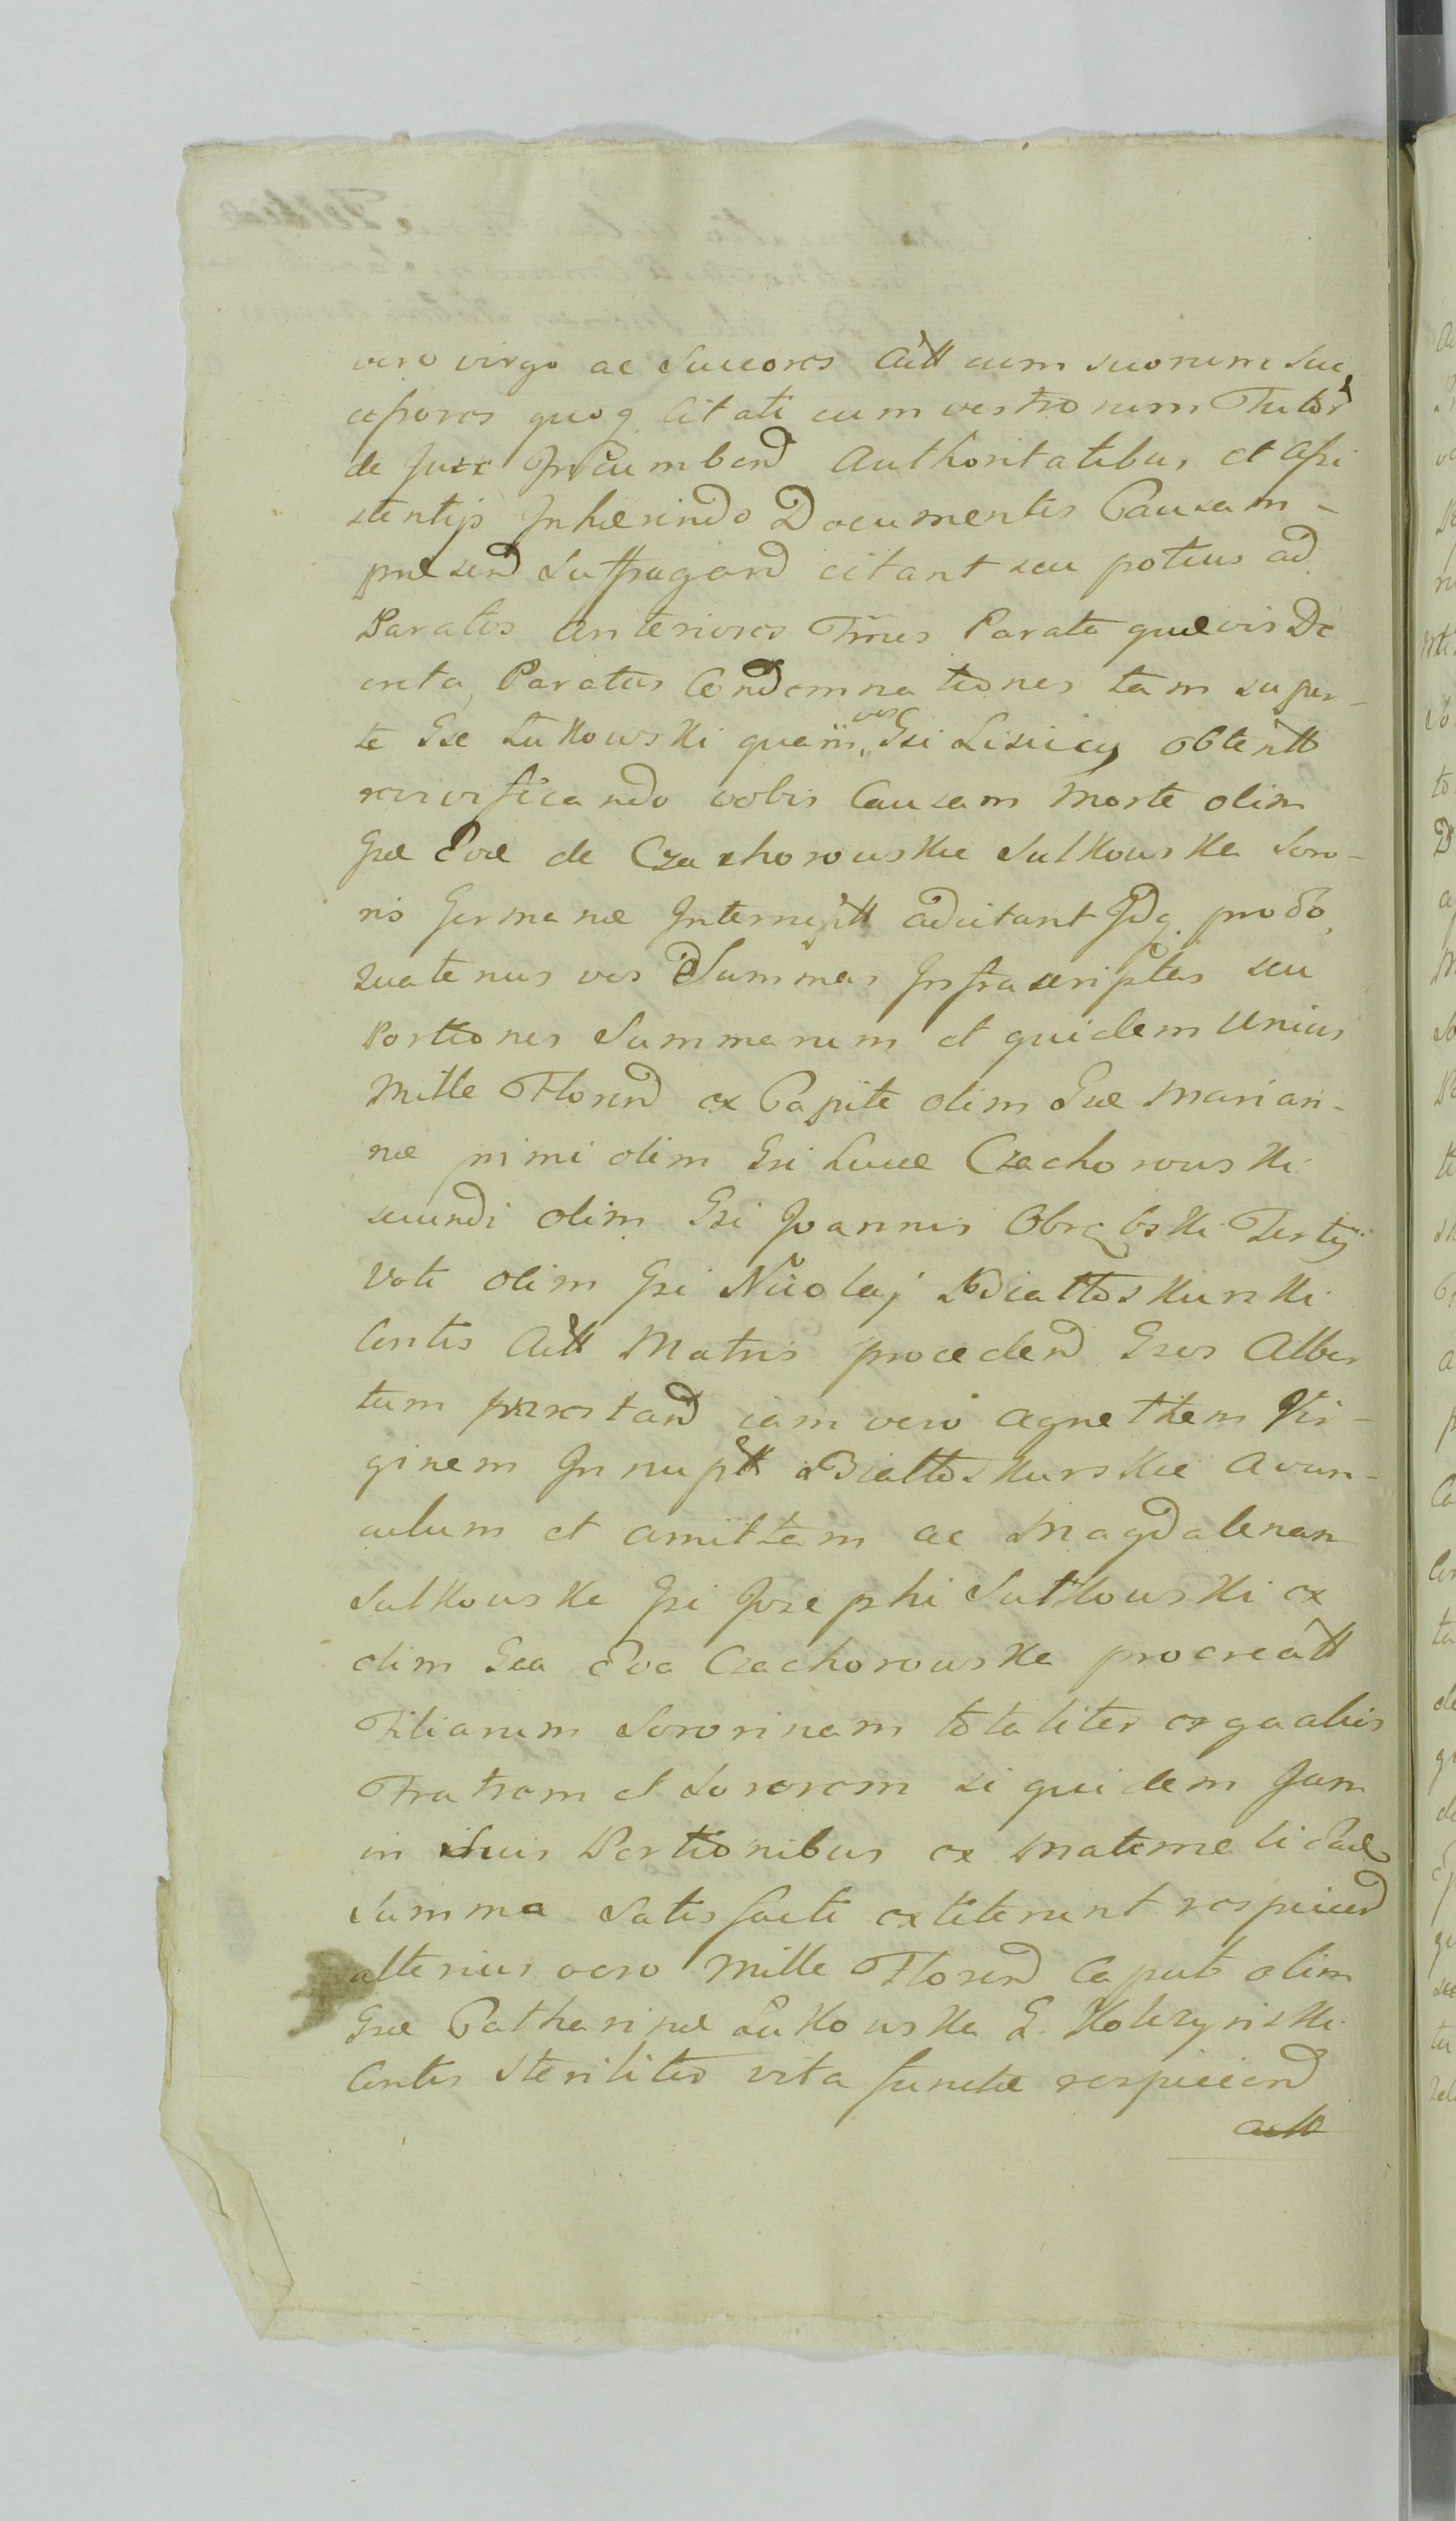 vero virgo ac Succores Actt cum suorum Suc¬
cessores quoq Citati cum vestrorum Tutor
de Jure Incumbend Authoritatibus et assi
stentijs Inhærendo Documentis Causam -
præsend Suffragand citant seu potius ad
Paratos Anteriores Tmes Parata quævis De
creta, Paratas Condemnationes tam super
te Gse Łukowski quam vos Gsi Lisiicy obtentt
revivificando vobis Causam Morte olim
Gsæ Evæ de Czachorowskie Sulkowska Soro-
ris Germanæ Interruptt adcitant Idq pro eo,
quatenus vos Summas Infrascriptas seu
Portiones Summarum et quidem Unius
Mille Floren ex Capite olim Gsæ Marian-
næ primi olim Gsi Lucæ Czachorowski
secundi olim Gsi Joannis Obrębski Tertij
Voti olim Gsi Nicolaj Białloskurski
Contis Actt Matris procedend Gsos Alber
tum præstand iam vero Agnethem Vir-
ginem Innuptt Białloskurskie Avun-
culum et amittam ac Magdalenam
Sulkowska Gsi Josephi Sulkowski ex
olim Gsa Eva Czachorowska procreatt
Filiarum Sororinam totaliter erga alios
Fratrem et Sororem siquidem Jam
in suis Portionibus ex Materna
Summa Satisfacti extiterunt respiciend
alterius vero Mille Floren Caput olim
Gsæ Catharinæ Łukowska G. Kobrzynski
Contis Steriliter vita functæ respiciend
actt